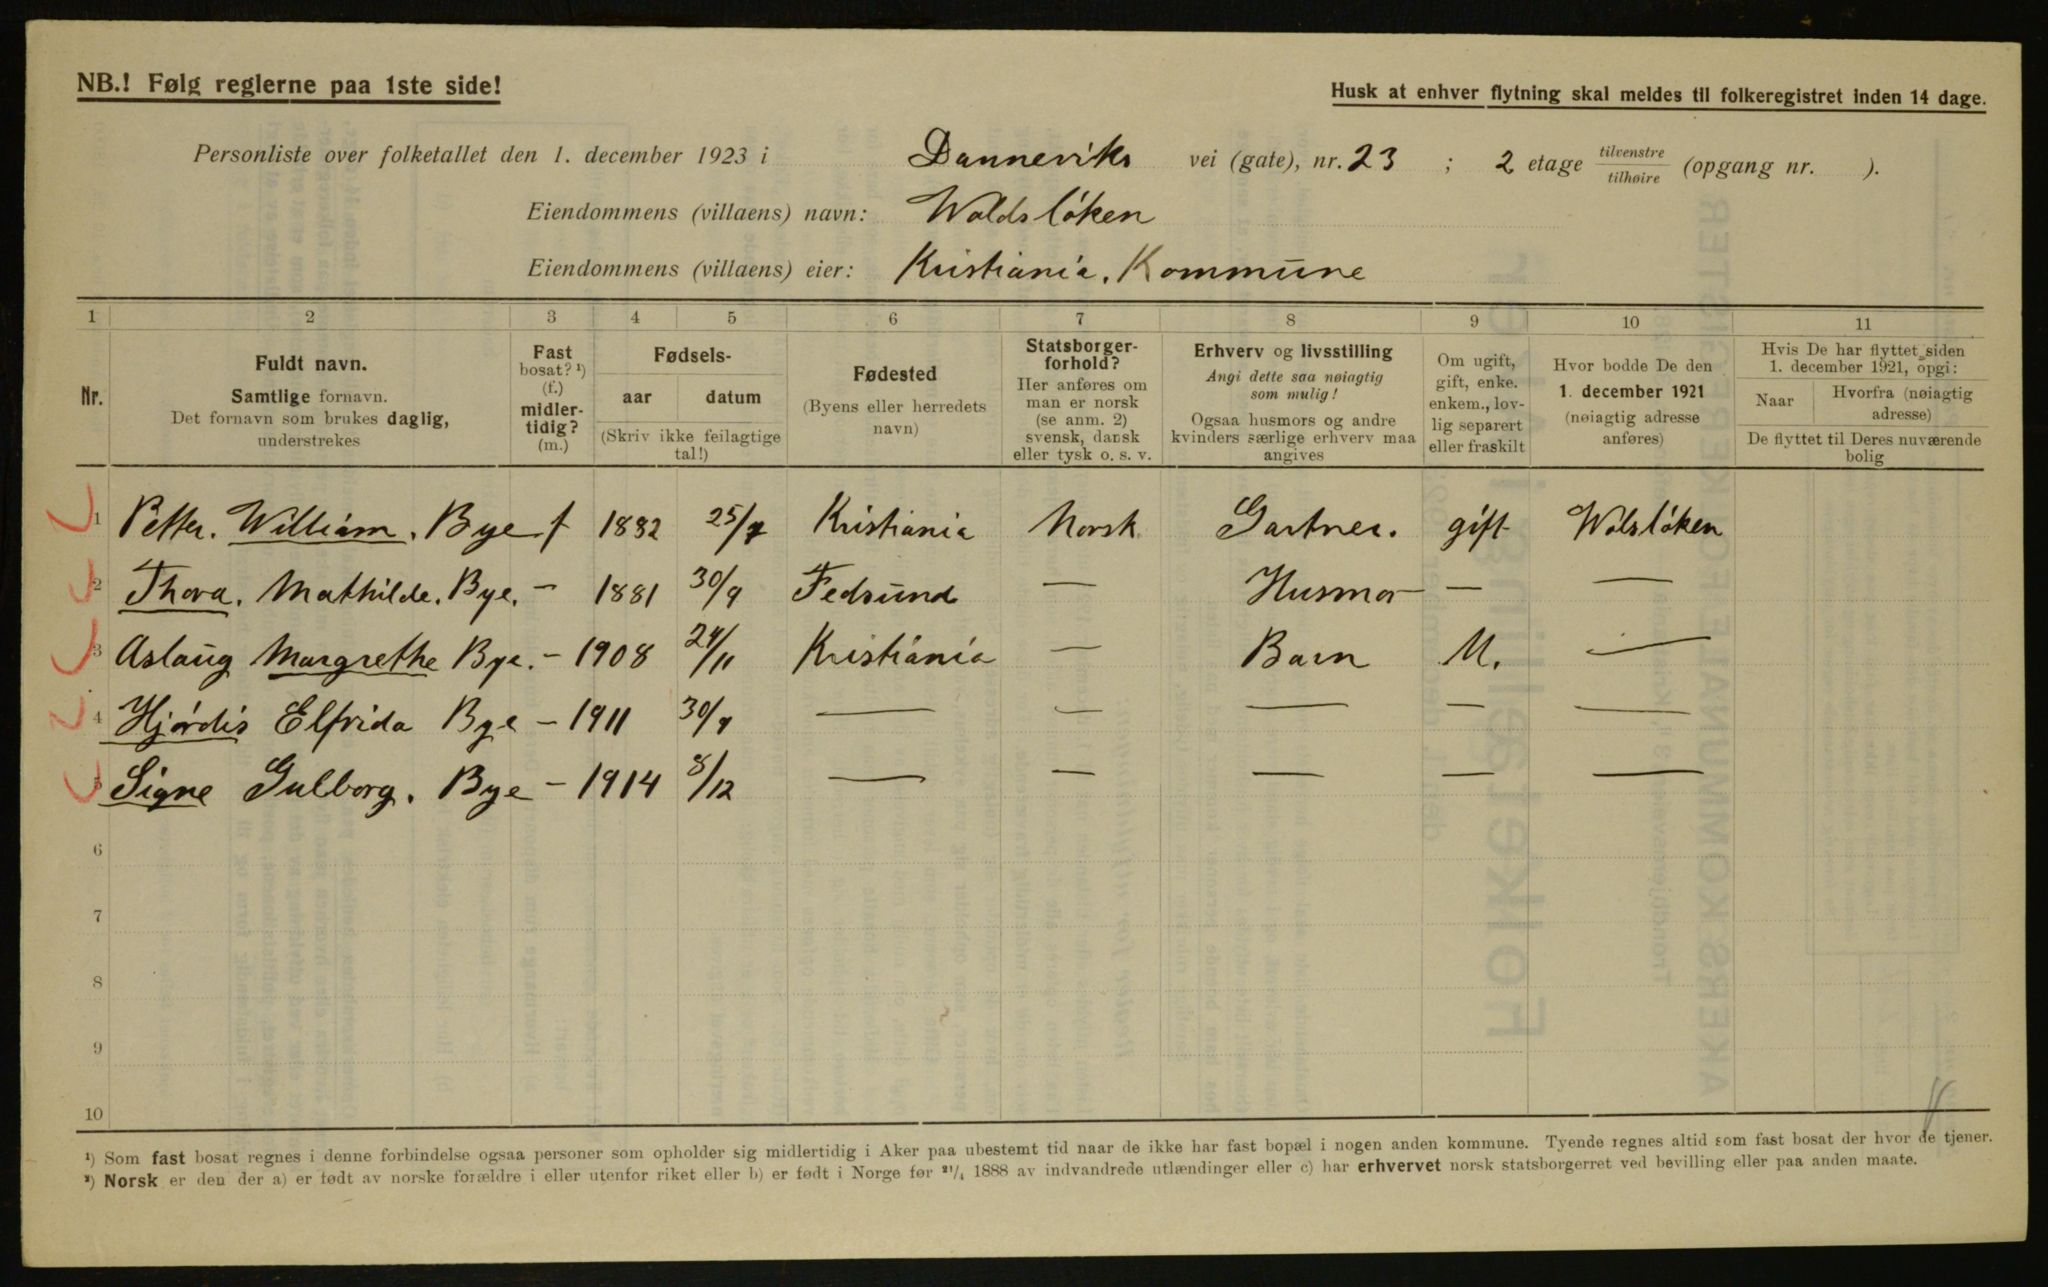 NB.! Følg reglerne paa 1ste side!
Husk at enhver flytning skal meldes til folkeregistret inden 14 dage.
Personliste over folketallet den 1. december 1923 i Danneviks vei (gate), nr. 23 ; 2 etage tilvenstre tilhøire (opgang nr. ).
Eiendommens (villaens) navn: Woldsløken
Eiendommens (villaens) eier: Kristiania. Kommune
1 2 3 4 5 6 7 8 9 10 11
Nr.
Fuldt navn.
Samtlige fornavn.
Det fornavn som brukes daglig,
understrekes
Fast
bosat? ¹)
(f.)
midler-
tidig?
(m.)
Fødsels-
aar datum
(Skriv ikke feilagtige
tal!)
Fødested
(Byens eller herredets
navn)
Statsborger-
forhold?
Her anføres om
man er norsk
(se anm. 2)
svensk, dansk
eller tysk o. s. v.
Erhverv og livsstilling
Angi dette saa nøiagtig
som mulig!
Ogsaa husmors og andre
kvinders særlige erhverv maa
angives
Om ugift,
gift, enke.
enkem., lov-
lig separert
eller fraskilt
Hvor bodde De den
1. december 1921
(nøiagtig adresse
anføres)
Hvis De har flyttet siden
1. december 1921, opgi:
Naar
Hvorfra (nøiagtig
adresse)
De flyttet til Deres nuværende
bolig
1 Petter. William. Bye f 1882 25/7 Kristiania Norsk. Gartner. gift Wolsløken
2 Thora. Mathilde. Bye. — 1881 30/9 Fedsund — Husmor — —
3 Aslaug Margrethe Bye. — 1908 24/11 Kristiania — Barn U. —
4 Hjørdis Elfrida Bye — 1911 30/9 — — — — —
5 Signe Gulborg. Bye — 1914 8/12 — — — — —
6
7
8
9
10
¹) Som fast bosat regnes i denne forbindelse ogsaa personer som opholder sig midlertidig i Aker paa ubestemt tid naar de ikke har fast bopæl i nogen anden kommune. Tyende regnes altid som fast bosat der hvor de tjener.
²) Norsk er den der a) er født av norske forældre i eller utenfor riket eller b) er født i Norge før ²¹/₄ 1888 av indvandrede utlændinger eller c) har erhvervet norsk statsborgerret ved bevilling eller paa anden maate.